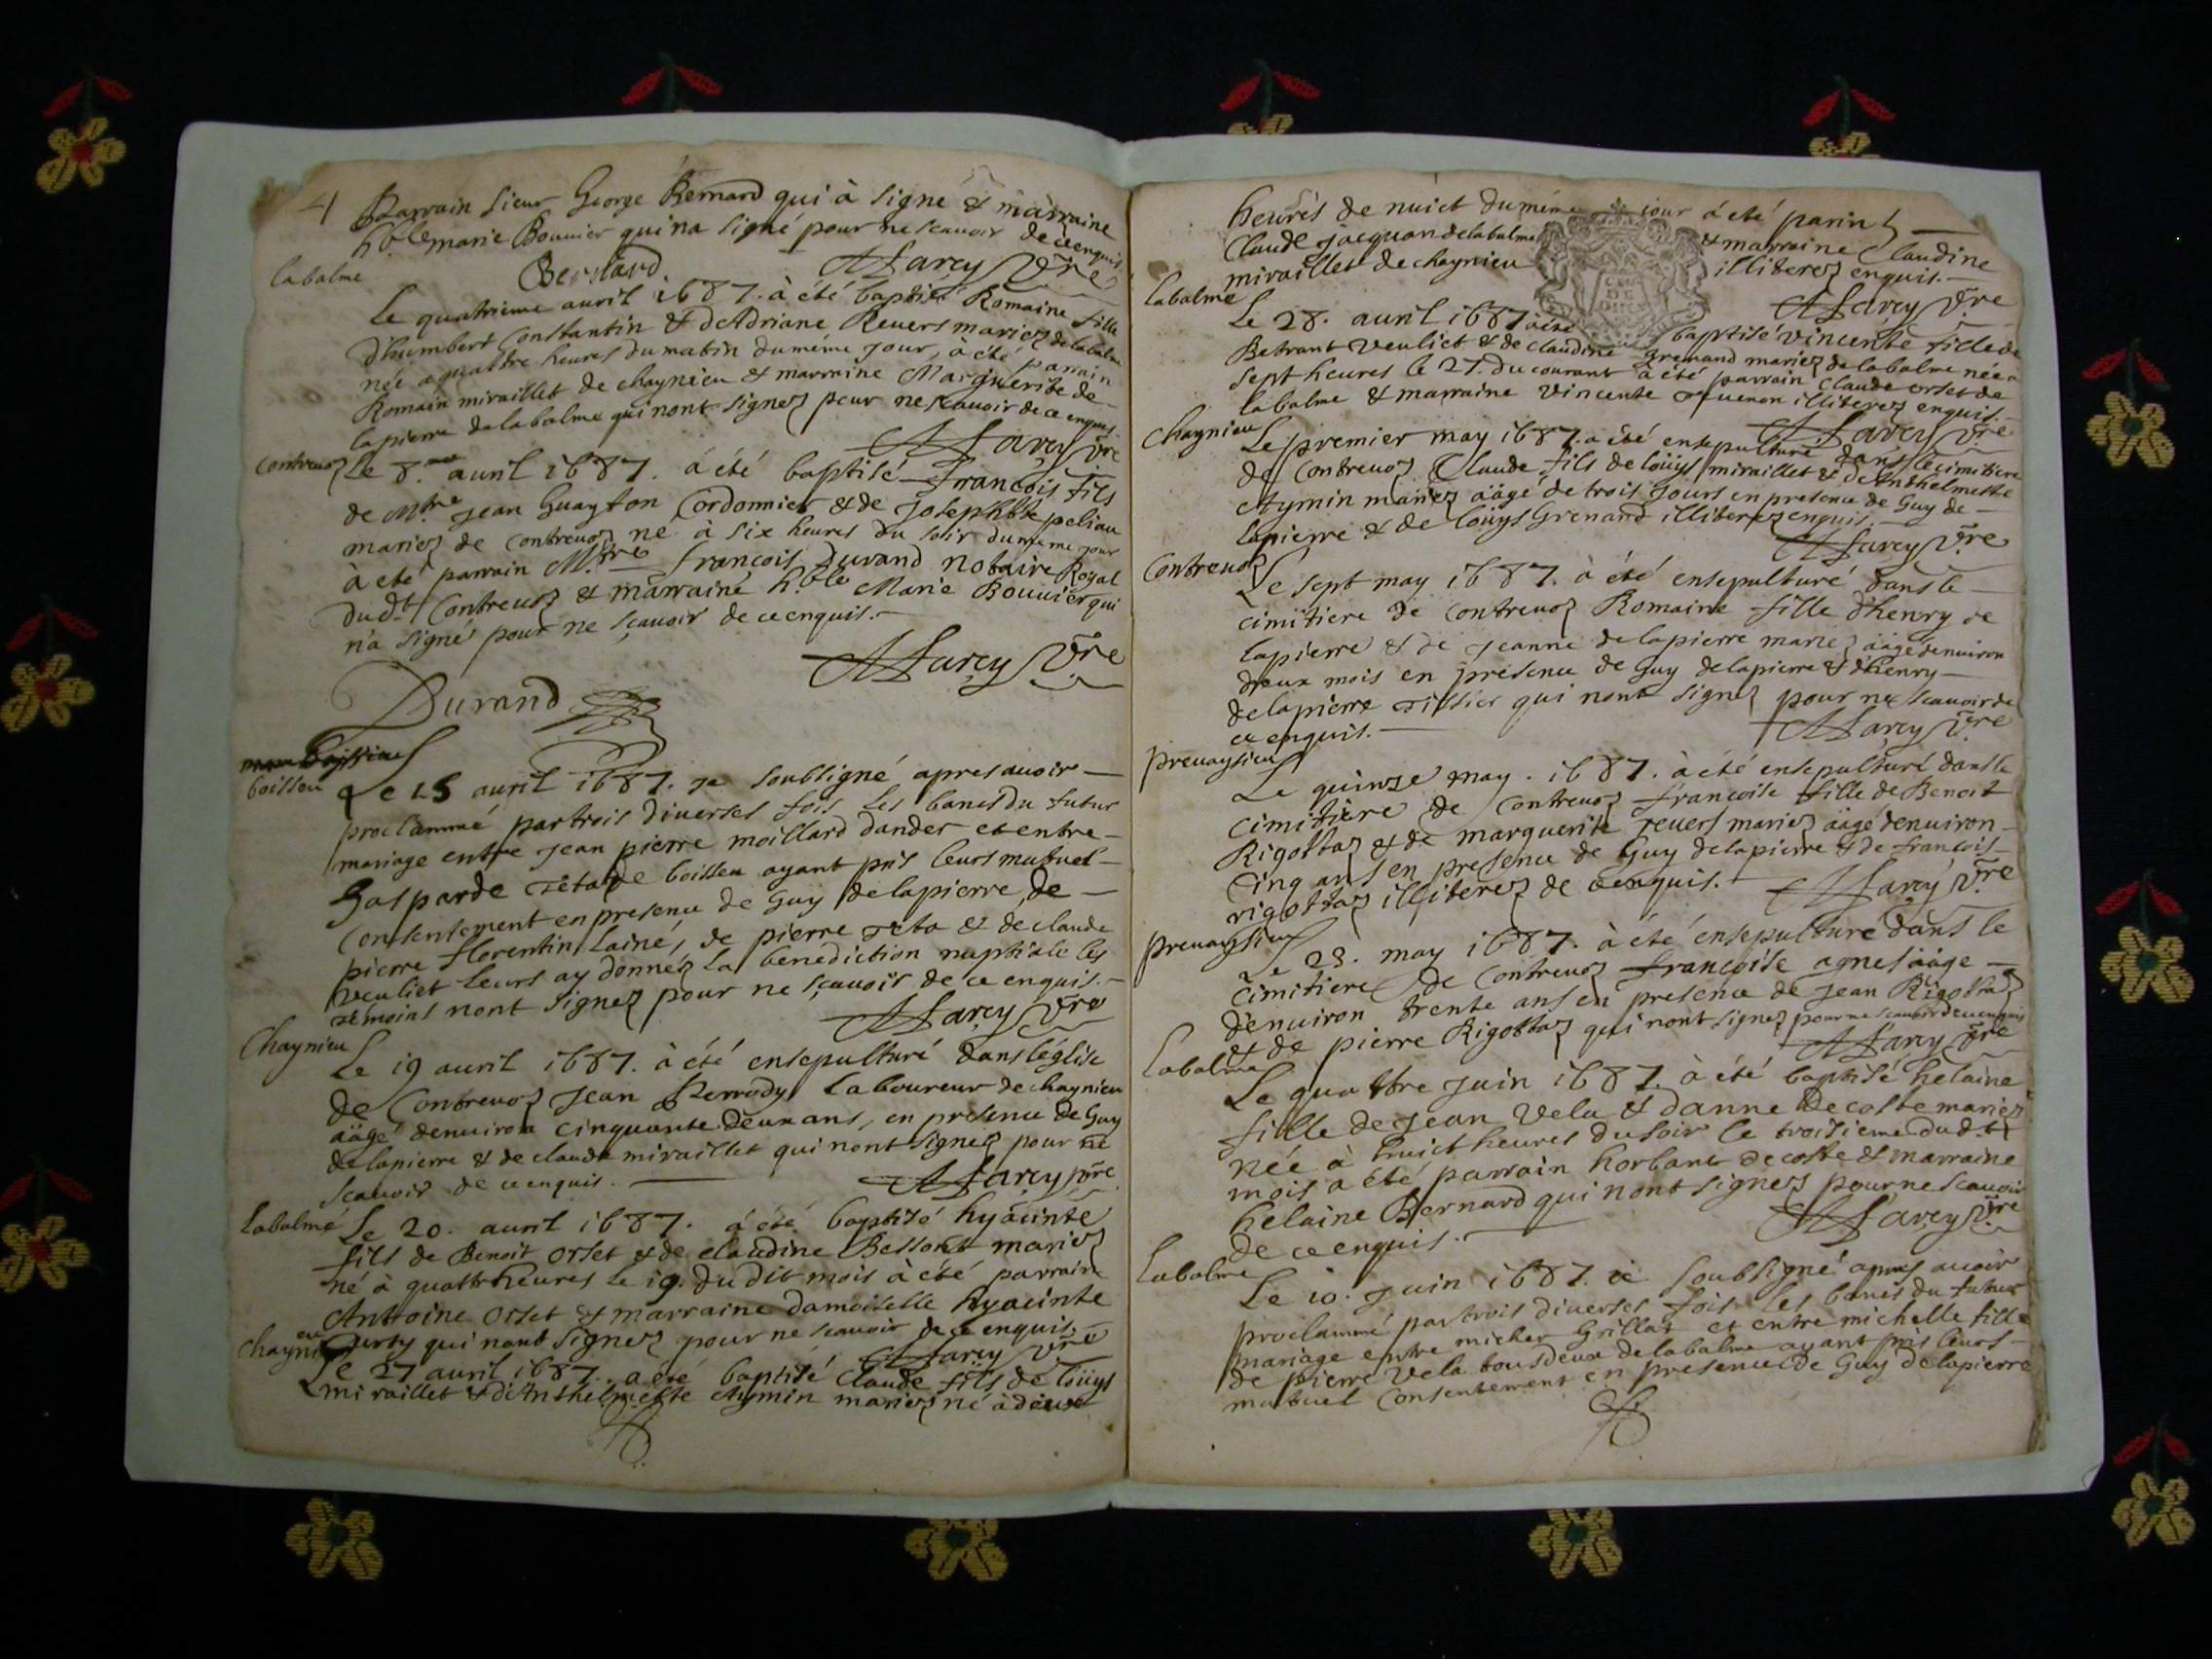 4
Parrain sieur George Bernard qui à signé & marraine
h.ble marie Bouuier qui na signé pour ne scauoir de ce enquis
Bernard. Sarcy p.re
labalme
Le quatrieme auril 1687. à été baptisé Romaine fille
d'humbert Constantin & d'Adriane Reuers mariez de labalme
née a quattre heures du matin du méme jour, à été parrain
Romain miraillet de chaynieu & marraine Marguerite de
lapierre de labalme qui nont signez pour ne scauoir de ce enquis
Sarcy p.re
Contreuoz
Le 8.me auril 1687. á été baptisé françois fils
de M.tre Jean Guayton Cordonnier & de Josephte peliau
mariez de Contreuoz né à six heures du soir du méme jour
à eté parrain M.tre françois Durand notaire Royal
du d.t Contreuoz & marraine h.ble Marie Bouuier qui
n'a signé pour ne sçauoir de ce enquis.
Sarcy p.re
Durand
boissieu
Le 15 auril 1687. Je soubsigné apres auoir
proclammé par trois diuerses fois les bancs du futur
mariage entre Jean pierre moillard dander et entre
Gasparde de boisseu ayant pris leurs mutuel
Consentement en presence de Guy delapierre, de
pierre florentin lainé, de pierre & de claude
veuliet leurs ay donnéz la benediction nuptiale les
témoins nont signez pour ne sçauoir de ce enquis.
Sarcy p.re
Chaynieu
Le 19 auril 1687. à été ensepulturé dans léglise
de Contreuoz Jean Perrody laboureur de chaynieu
äagé denuiron cinquante deux ans, en presence de Guy
delapierre & de claude miraillet qui nont signez pour ne
scauoir de ce enquis. Sarcy p.re
labalme
Le 20. auril 1687. à été baptisé hyacinte
fils de Benoit orset & de claudine Bellort mariez
né à quattr heures le 19. du dit mois à été parrain
Antoine orset & marraine damoiselle hyacinte
Curty qui nont signez pour ne scauoir de ce enquis.
Sarcy p.re
Chaynieu
Le 27 auril 1687. a été baptisé Claude fils de loüys
miraillet & d'Anthelmette Aymin mariez né à deux
heures de nuict du méme jour á eté parin
Claude Jacquon de labalme & marraine Claudine
miraillet de chaynieu illiterez enquis.
Sarcy p.re
labalme
Le 28. auril 1687 à été baptisé vincente fille de
Betrant veuliet & de claudine grenand mariez de labalme née a
sept heures le 27. du courant à été parrain Claude orset de
labalme & marraine vincente illiterez enquis.
Sarcy p.re
Chaynieu
Le premier may 1687. a été ensepulturé dans le cimitiere
de Contreuoz Claude fils de loüys miraillet & de Anthelmette
Aymin mariez äagé de trois Jours en presence de Guy de
lapierre & de loüys Grenand illiterez enquis.
Sarcy p.re
Contreuoz
Le sept may 1687. à été ensepulturé dans le
cimitiere de Contreuoz Romaine fille d'henry de
lapierre & de Jeanne de lapierre mariez äagé denuiron
deux mois en presence de Guy delapierre & d'henry
delapierre Tissier qui nont signez pour ne scauoir de
ce enquis. Sarcy p.re
preuaysieu
Le quinze may. 1687. à été ensepulturé dans le
cimitiere de Contreuoz françoise fille de Benoit
Rigottaz & de marguerite reuers mariez äagé denuiron
Cinq ans en presence de Guy delapierre & de françois
rigottaz illiterez de ce enquis. Sarcy p.re
preuaysieu
Le 23. may 1687. à été ensepulturé dans le
cimitiere de Contreuoz françoise agnes äage
denuiron trente ans en presence de Jean Rigottaz
& de pierre Rigottaz qui nont signez pour ne scauoir de ce enquis
Sarcy p.re
Labalme
Le quattre Juin 1687. à été baptisé helaine
fille de Jean Vela & danne decoste mariez
née à huict heures du soir le troisieme du d.t
mois a été parrain horbant decoste & marraine
helaine Bernard qui nont signez pour ne scauoir
de ce enquis. Sarcy p.re
Labalme
Le 10. Juin 1687. ie soubsigné apres auoir
proclammé par trois diuerses fois les bancs du futur
mariage entre michel Grillat et entre michelle fille
de pierre Vela tous deux de labalme ayant pris leurs
mutuel Consentement en presence de Guy delapierre